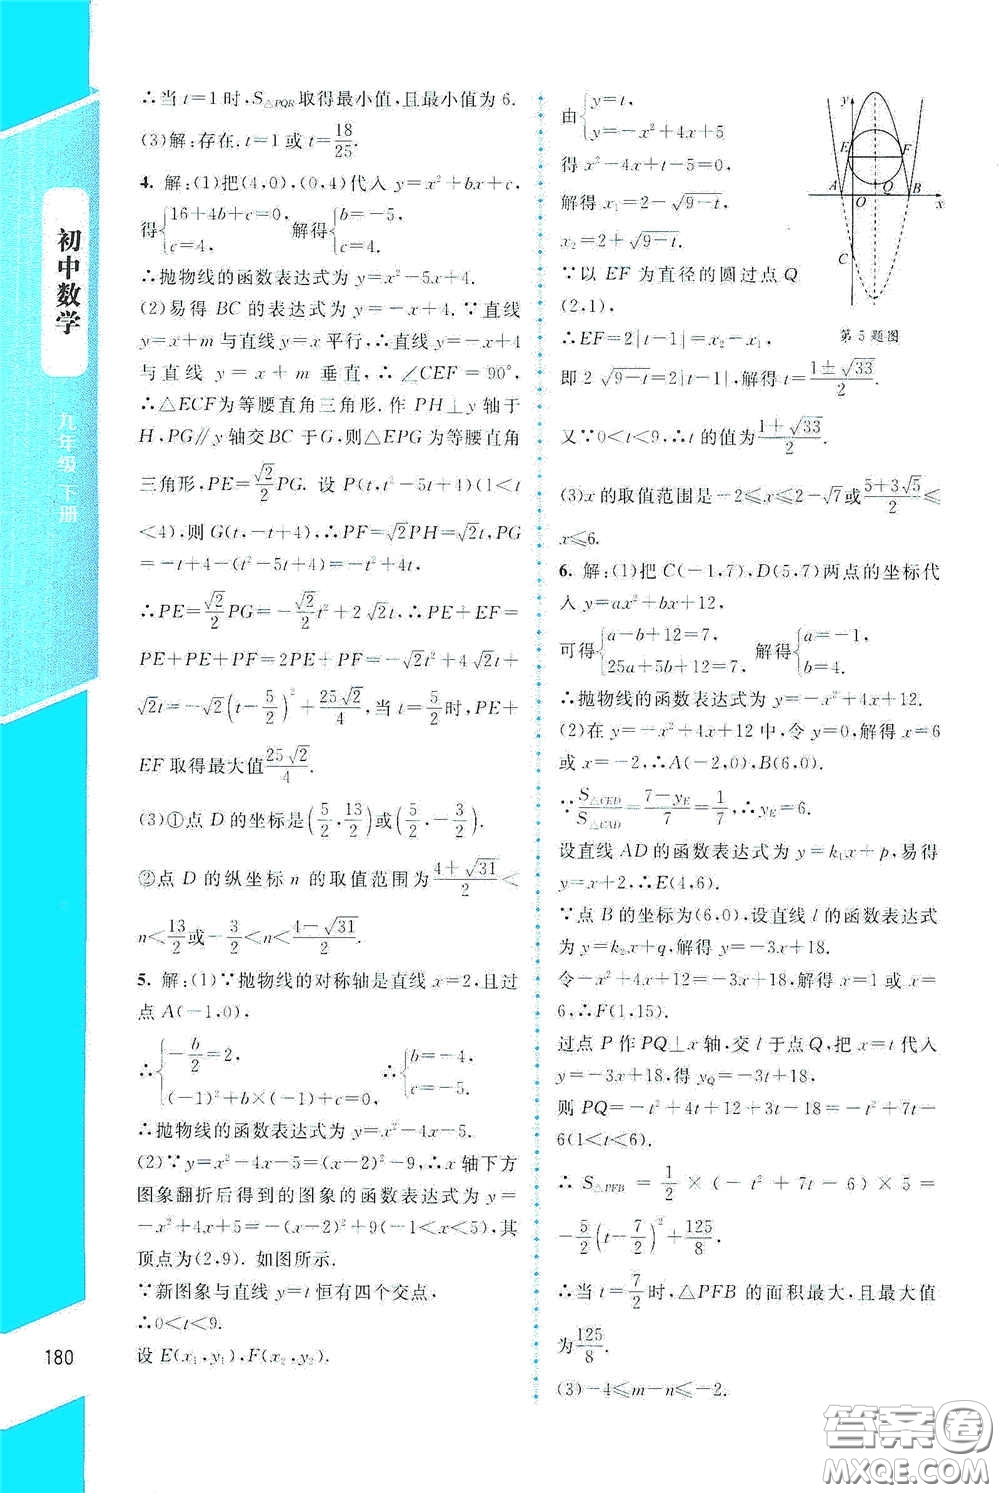 初中数学
九年级 下册
180
∴当 t=1 时,S△PQR 取得最小值,且最小值为 6.
(3)解:存在. t=1 或 t=18/25.
4. 解:(1)把(4,0),(0,4)代入 y=x²+bx+c,
得{16+4b+c=0, c=4, 解得{b=-5, c=4.
∴抛物线的函数表达式为 y=x²-5x+4.
(2)易得 BC 的表达式为 y=-x+4. ∵直线
y=x+m 与直线 y=x 平行,∴直线 y=-x+4
与直线 y=x+m 垂直,∴∠CEF=90°,
∴△ECF为等腰直角三角形. 作 PH⊥y 轴于
H,PG∥y 轴交 BC 于 G,则△EPG 为等腰直角
三角形,PE=√2/2 PG. 设 P(t,t²-5t+4)(1<t
<4),则 G(t,-t+4),∴PF=√2PH=√2t,PG=
-t+4-(t²-5t+4)=-t²+4t,
∴PE=√2/2 PG=-√2/2 t²+2√2t,∴PE+EF=
PE+PE+PF=2PE+PF=-√2t²+4√2t+
√2t=-√2(t-5/2)²+25√2/4,当 t=5/2时,PE+
EF 取得最大值25√2/4.
(3)①点 D 的坐标是(5/2,13/2)或(5/2,-3/2).
②点 D 的纵坐标 n 的取值范围为(4+√31)/2<
n<13/2或-3/2<n<(4-√31)/2.
5. 解:(1)∵抛物线的对称轴是直线 x=2,且过
点 A(-1,0),
∴{-b/2=2, (-1)²+b×(-1)+c=0, ∴{b=-4, c=-5.
∴抛物线的函数表达式为 y=x²-4x-5.
(2)∵y=x²-4x-5=(x-2)²-9,∴x 轴下方
图象翻折后得到的图象的函数表达式为 y=
-x²+4x+5=-(x-2)²+9(-1<x<5),其
顶点为(2,9). 如图所示.
∵新图象与直线 y=t 恒有四个交点,
∴0<t<9.
设 E(x₁,y₁),F(x₂,y₂).
由{y=t, y=-x²+4x+5
得 x²-4x+t-5=0,
解得 x₁=2-√(9-t),
x₂=2+√(9-t).
∵以 EF 为直径的圆过点 Q
(2,1),
∴EF=2|t-1|=x₂-x₁,
y
E
F
A
O
Q
B
x
C
第 5 题图
即 2√(9-t)=2|t-1|,解得 t=(1±√33)/2.
又∵0<t<9,∴t 的值为(1+√33)/2.
(3)x 的取值范围是-2≤x≤2-√7或(5+3√5)/2≤
x≤6.
6. 解:(1)把 C(-1,7),D(5,7)两点的坐标代
入 y=ax²+bx+12,
可得{a-b+12=7, 25a+5b+12=7, 解得{a=-1, b=4.
∴抛物线的函数表达式为 y=-x²+4x+12.
(2)在 y=-x²+4x+12 中,令 y=0,解得 x=6
或 x=-2,∴A(-2,0),B(6,0).
∵S△CED/S△CAD=(7-yE)/7=1/7,∴yE=6.
设直线 AD 的函数表达式为 y=k₁x+p,易得
y=x+2,∴E(4,6).
∵点 B 的坐标为(6,0),设直线 l 的函数表达式
为 y=k₂x+q,解得 y=-3x+18.
令-x²+4x+12=-3x+18,解得 x=1 或 x=
6,∴F(1,15).
过点 P 作 PQ⊥x 轴,交 l 于点 Q,把 x=t 代入
y=-3x+18,得 yQ=-3t+18,
则 PQ=-t²+4t+12+3t-18=-t²+7t-
6(1<t<6).
∴S△PFB=1/2×(-t²+7t-6)×5=
-5/2(t-7/2)²+125/8.
∴当 t=7/2时,△PFB 的面积最大,且最大值
为125/8.
(3)-4≤m-n≤-2.
答案卷
MXQE.COM